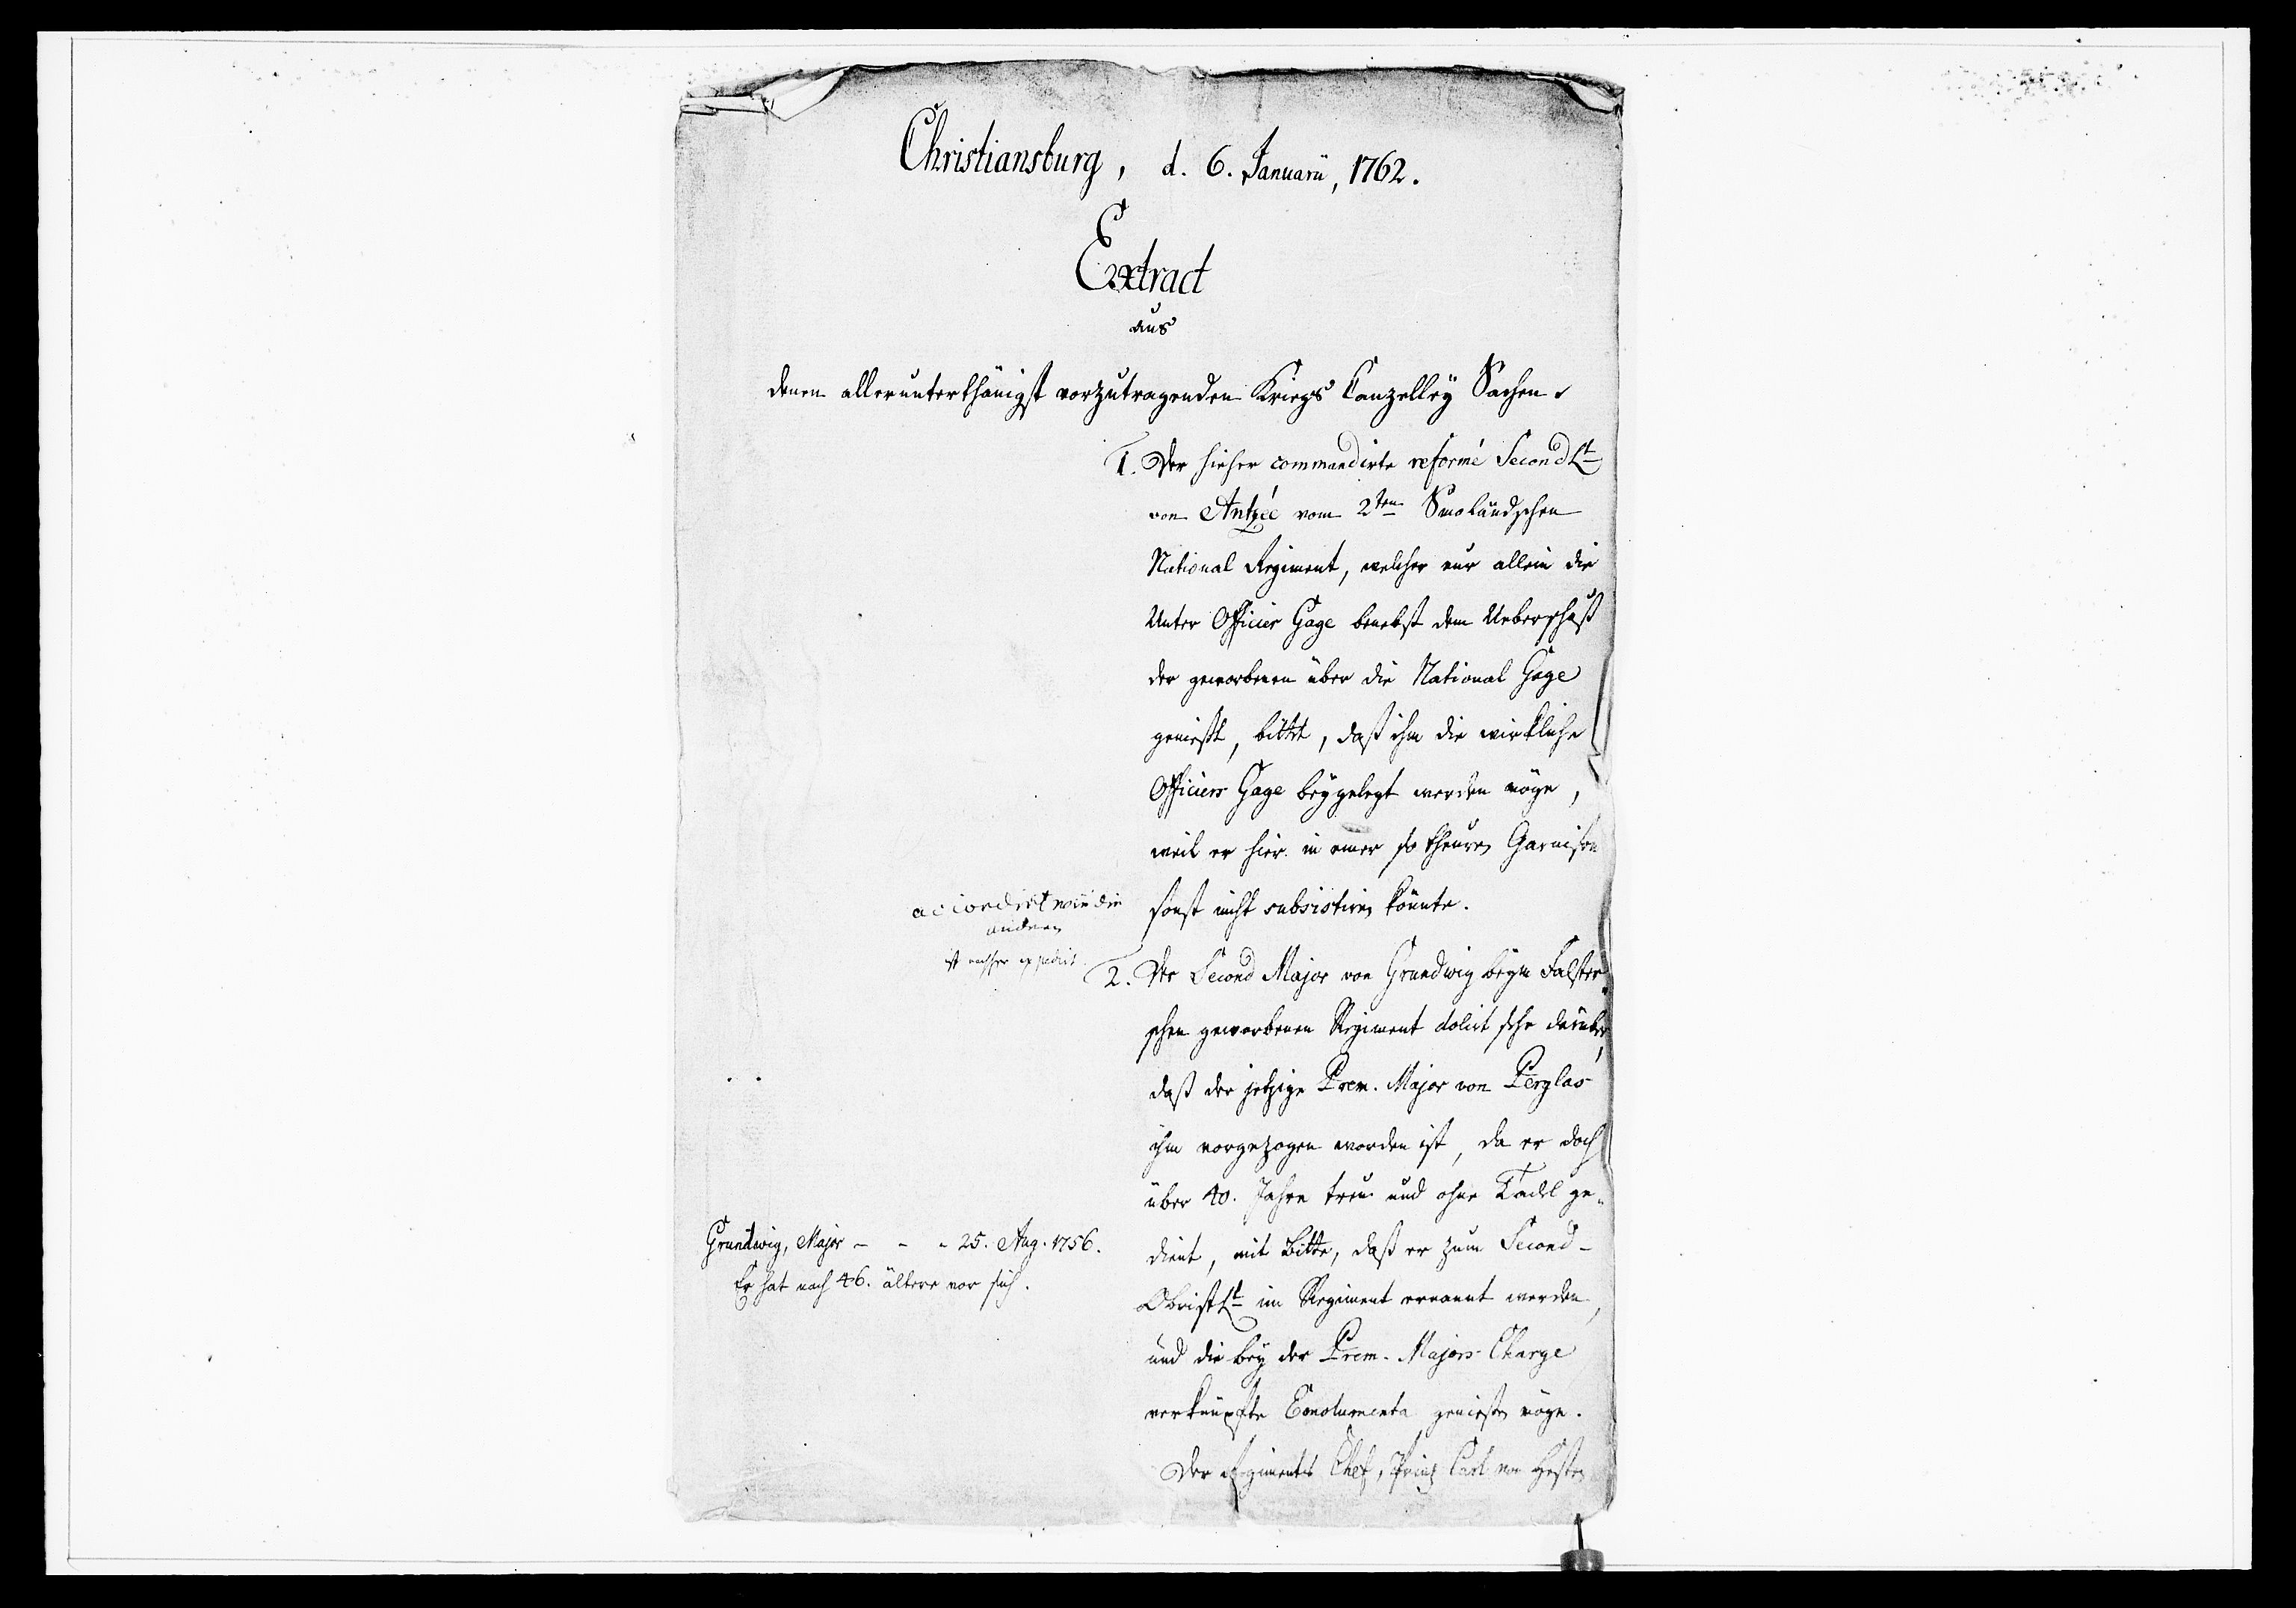 Christiansburg, d. 6. Januarii, 1762.
Extract
aus
denen allerunterthänigst vorzutragenden Kriegs Canzelley Sachen.
1. Der hieher commandirte reformé Second Lt
von Antzée vom 2ten Smoländschen
National Regiment, welcher nur allein die
Unter Officier Gage benebst dem Ueberschuß
der geworbenen über die National Gage
genießt, bittet, daß ihm die wirkliche
Officiers Gage beygelegt werden möge,
weil er hier in einer so theuren Garnison
sonst nicht subsistiren könnte.
accordirt wie die
andern
ist nachher expedirt.
2. Der Second Major von Grundwig beym Falster-
schen geworbenen Regiment dolirt sehr darüber,
daß der jetzige Prem. Major von Perglas
ihm vorgezogen worden ist, da er doch
über 40. Jahre treu und ohne Tadel ge-
dient, mit Bitte, daß er zum Second-
Obrist Lt im Regiment ernannt werden,
und die bey der Prem. Majors Charge
verknüpfte Emolumenta genießen möge.
Grundwig, Major - - - 25. Aug. 1756.
Er hat noch 46. ältere vor sich.
Der Regiments Chef, Prinz Carl von Hessen